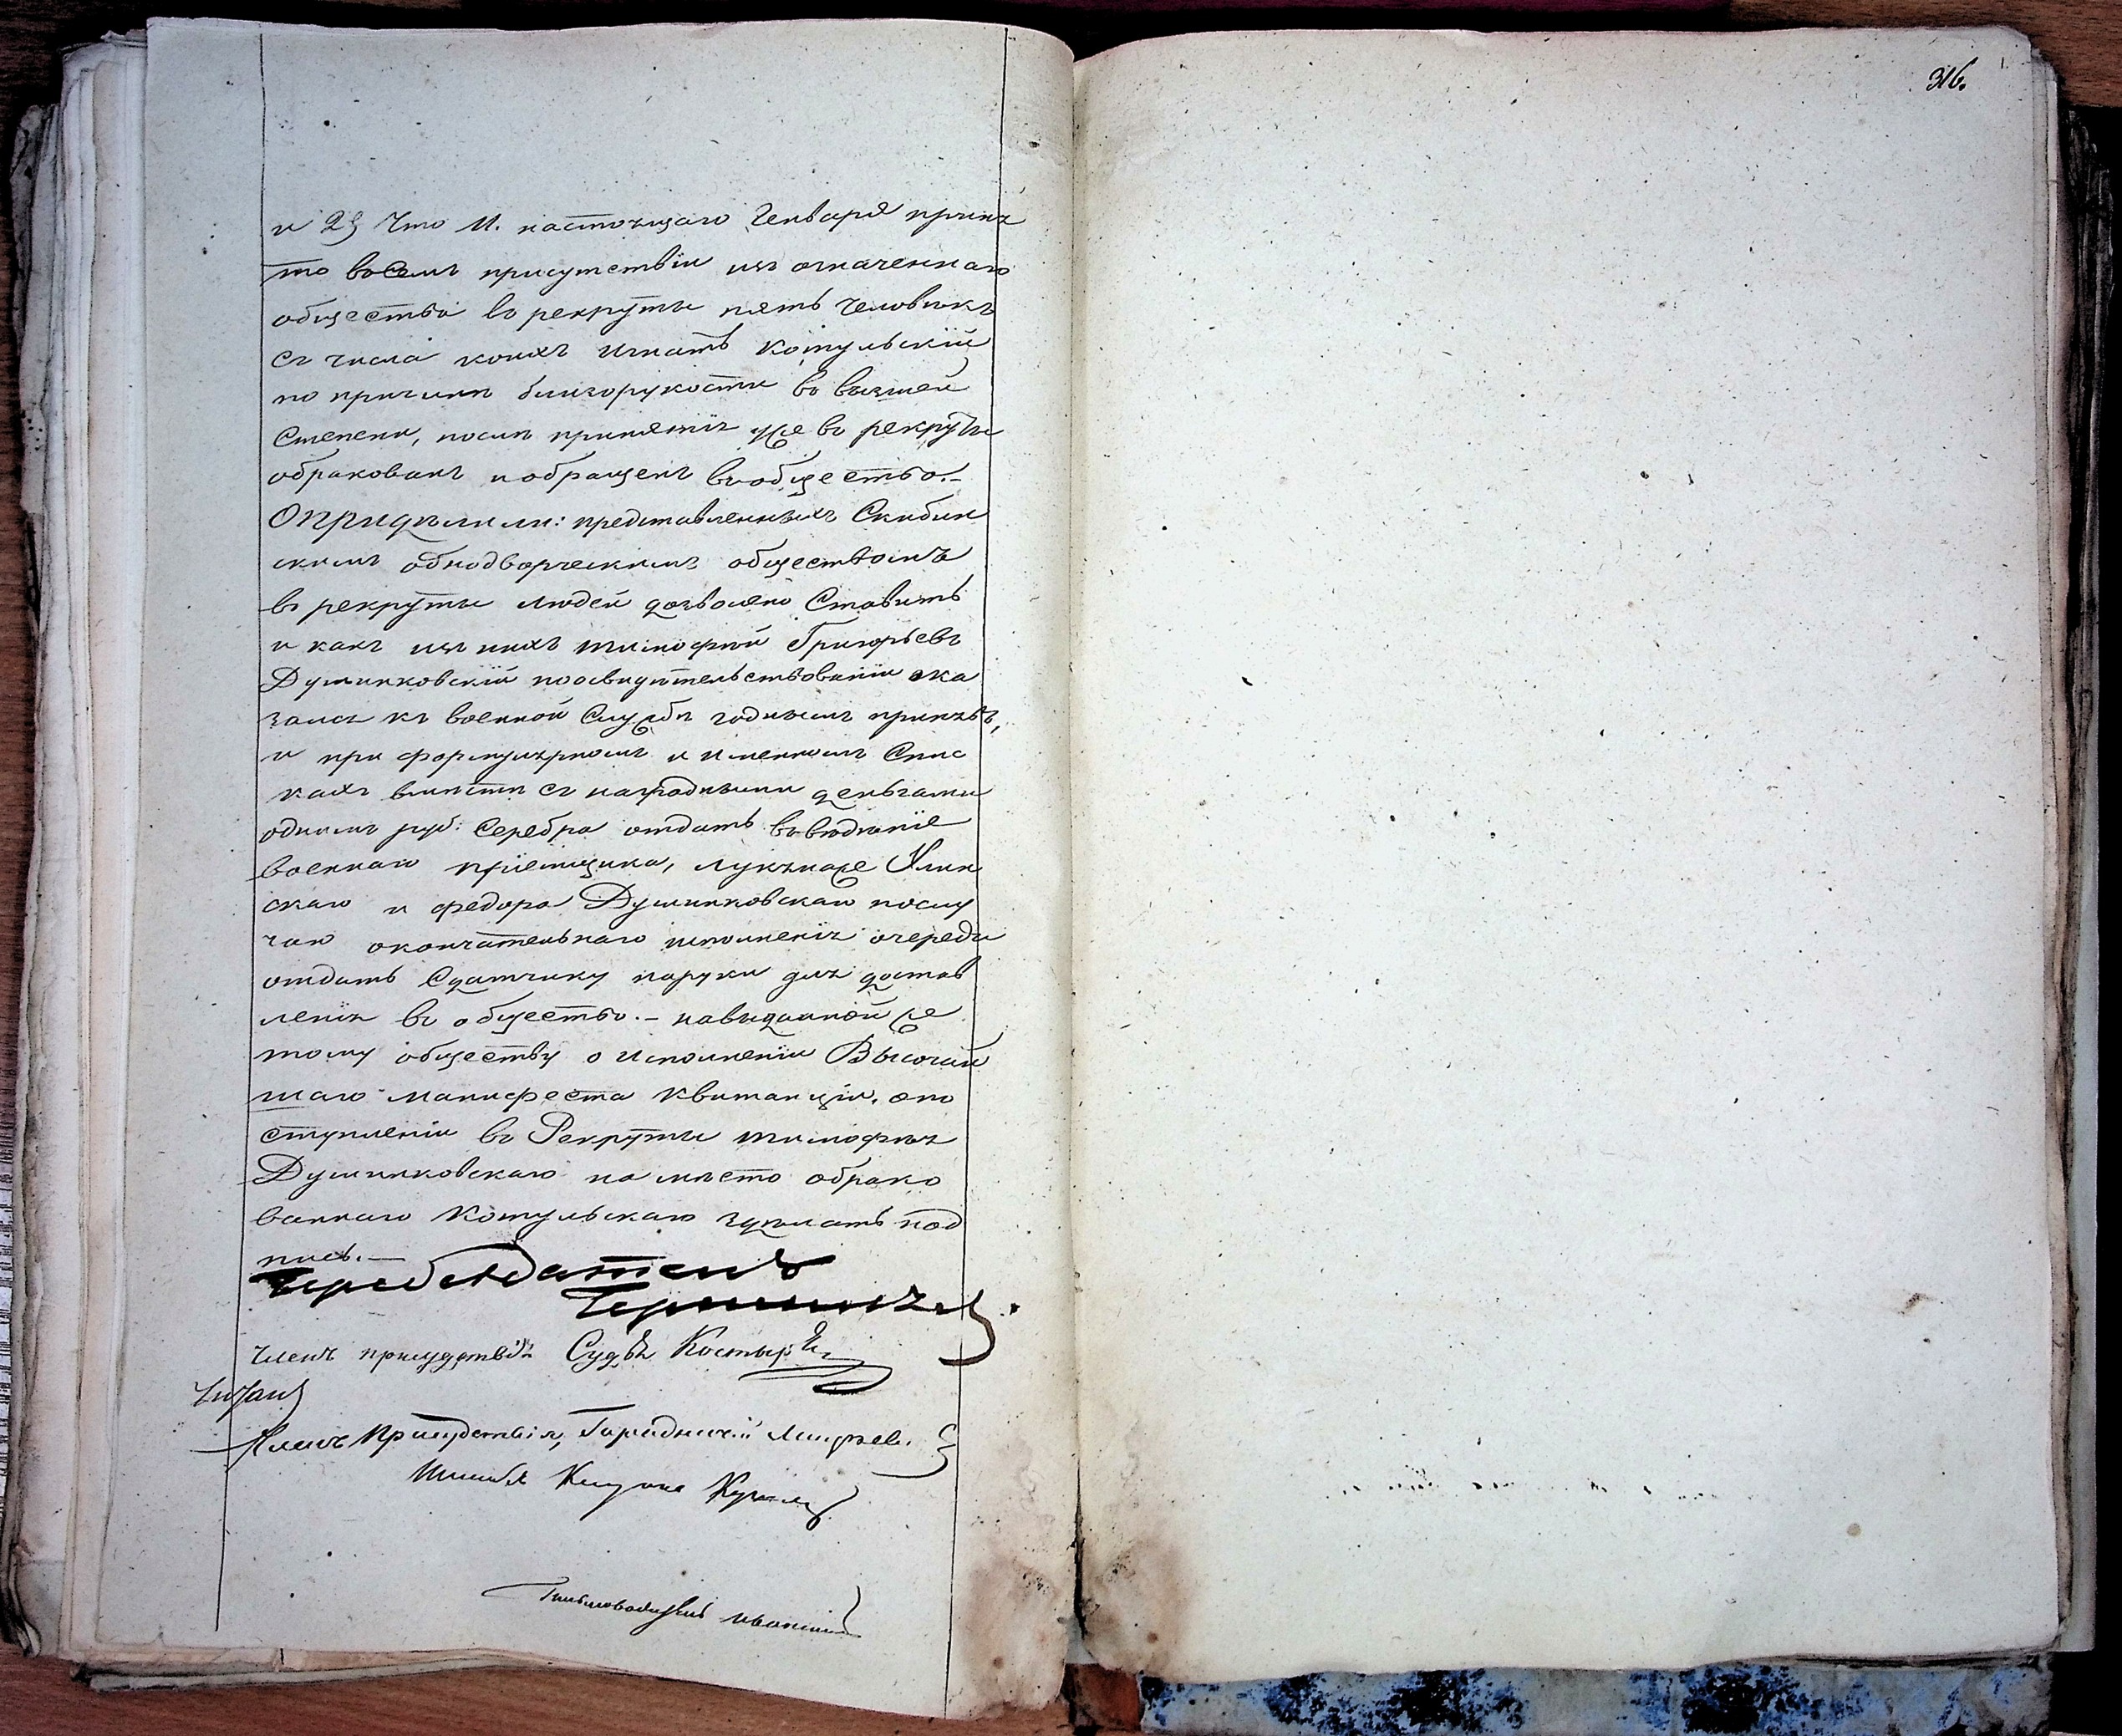 316.
и 2§ Что 11. настоящаго Генваря приня
то восемъ присутствіи изъ означеннаго
общества въ рекруты пять человѣкъ
съ числа коихъ Игнатъ Котульскій
по причинѣ близорукости въ высшей
Степени, послѣ принятія уже въ рекруты
обракованъ и обращенъ въ общество.-
Опридѣлили: представленныхъ Скибин
скимъ однодворческимъ обществомъ
въ рекруты людей дозволено Ставить
и какъ изъ нихъ тимофѣй Григорьевъ
Душинковскій по освидѣтельствованіи ока
зался къ военной Службѣ годнымъ принявъ,
и при формулярномъ и Именномъ Спис
кахъ вмѣстѣ съ наградными деньгами
однимъ руб: Серебра отдать въ вѣдѣніе
военнаго пріемщика, лукъяна же
скаго и федора Душинковскаго по слу
чаю окончательнаго исполненія очереди
отдать Сдатчику на руки для достав
ленія въ общество.- на выданной же
тому обществу о Исполненіи Высочай
шаго манифеста квитанціи. о по
ступленіи въ Рекруты тимофѣя
Душинковскаго на мѣсто обрако
ваннаго Котульскаго здѣлать под
пись.-
Председатель
членъ присудствія Судья
Членъ Присудствія, Городничій
Письмоводитель